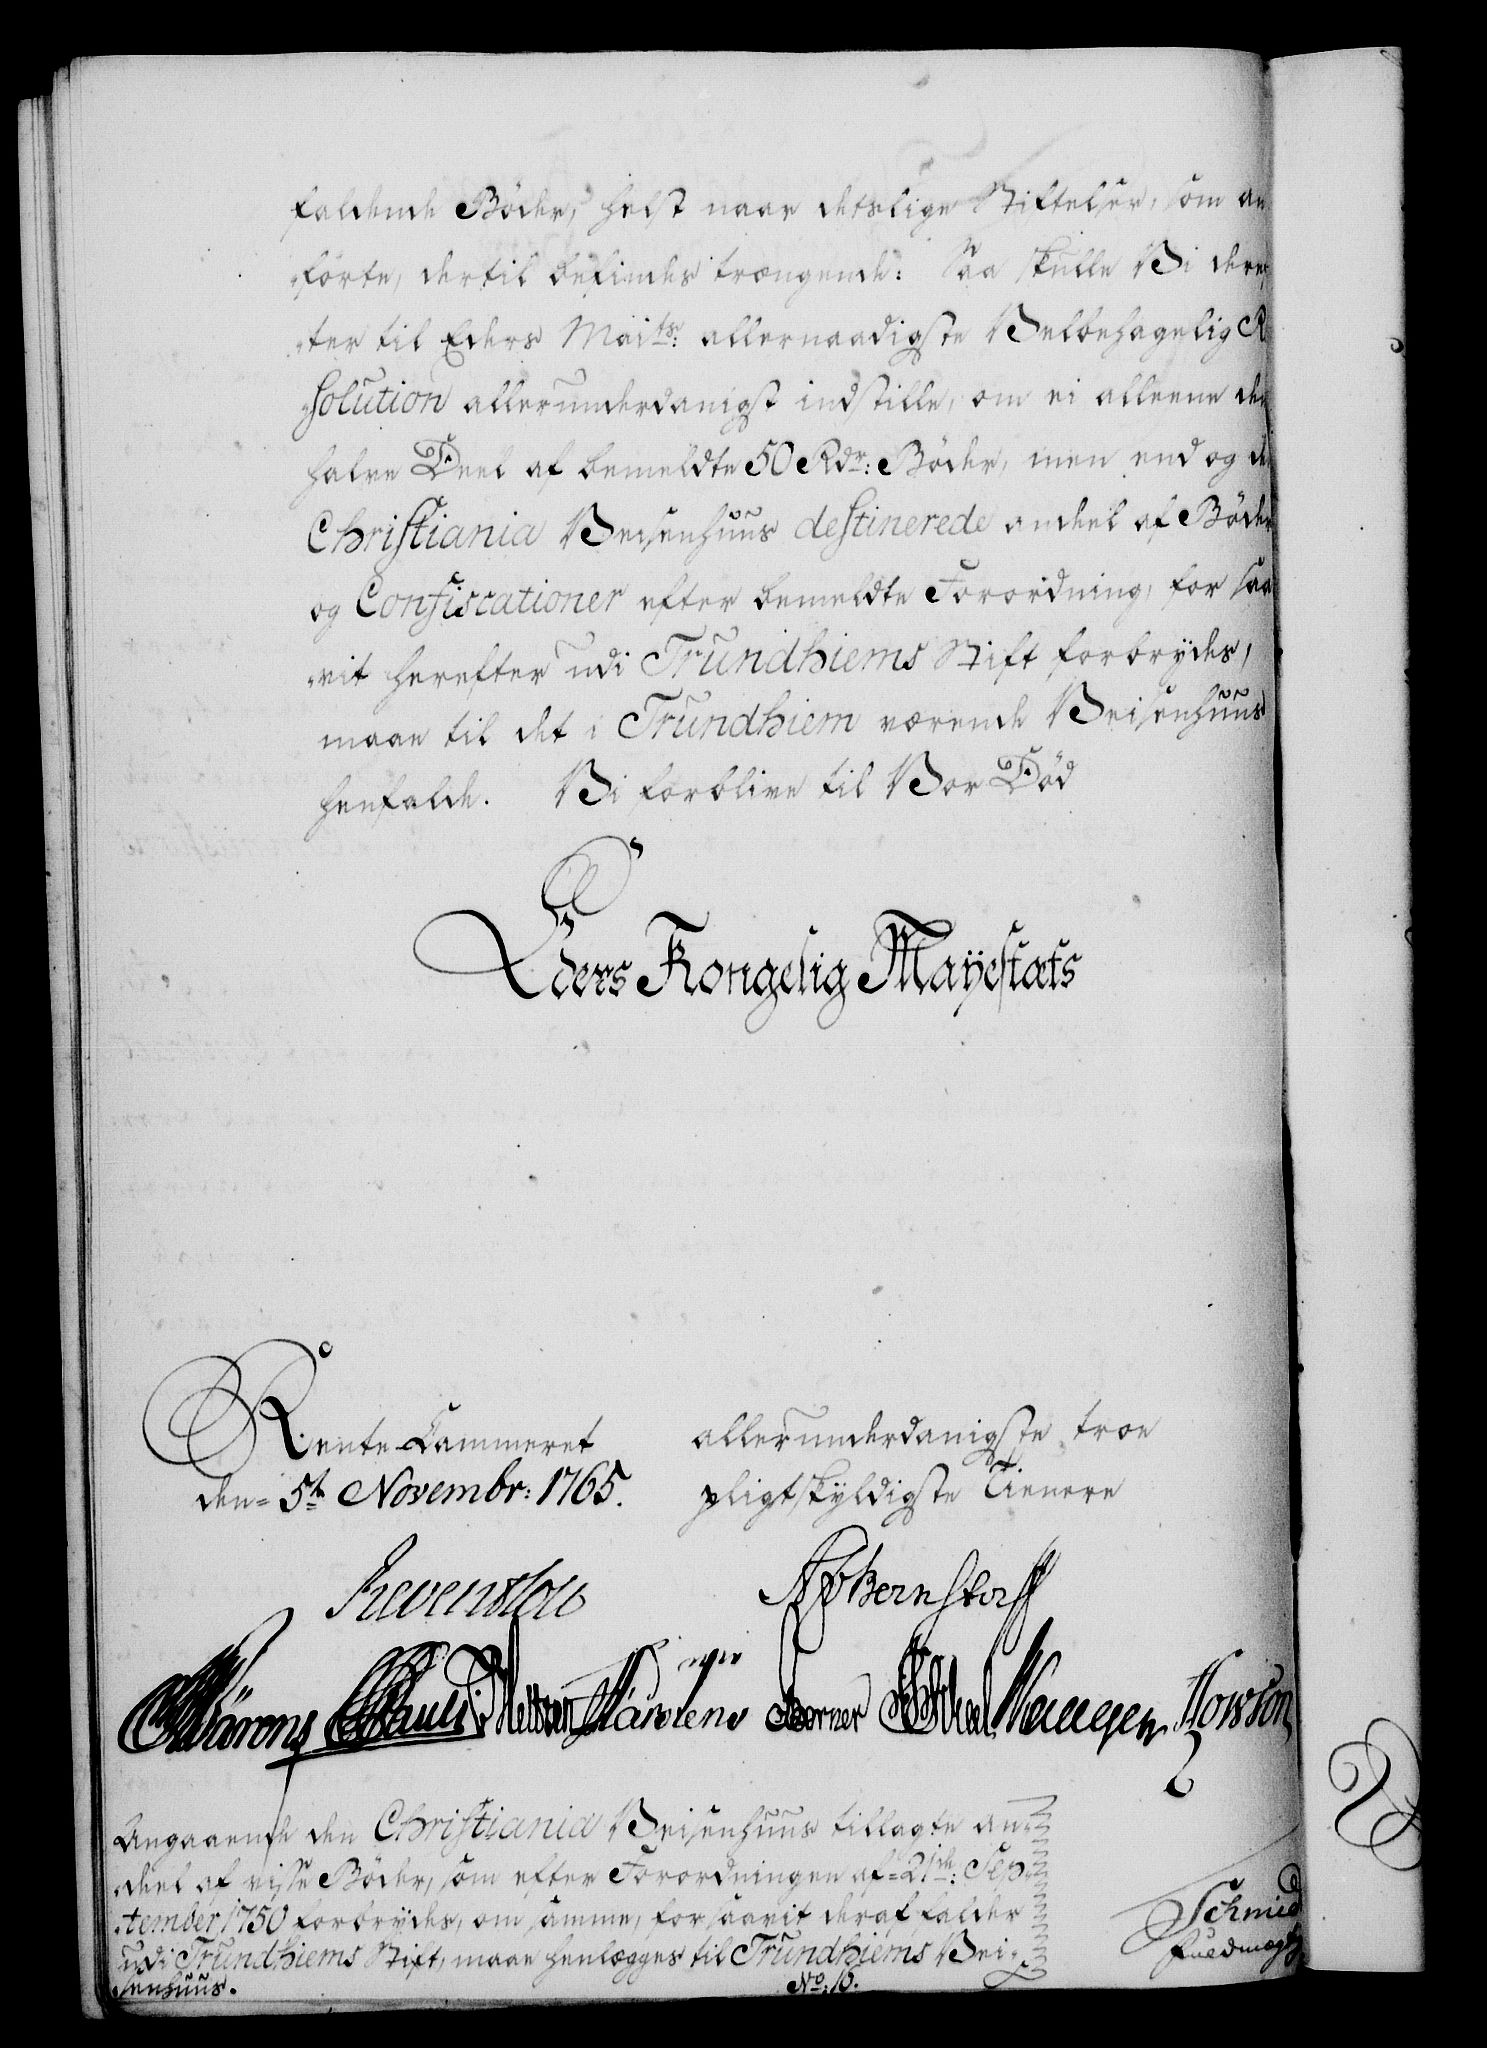 faldende Böder, helst naar detslige Stiftelser, som an
førte, dertil befindes trængende: Saa skulle Vi deref
ter til Eders Maits: allernaadigste Velbehagelig Re
solution allerunderdanigst indstille, om ei alleene den
halve Deel af bemeldte 50 Rdr: Böder, men end og de
Christiania Veisenhuus destinerede andeel af Böder
og Confiscationer efter bemeldte Forordning, for saa
vit herefter udi Trundhiems Stift forbrydes,
maae til det i Trundhiem værende Veisenhuus
henfalde. Vi forblive til Vor Död
Eders Kongelig Mayestæts
Rente Cammeret allerunderdanigste troe
den 5te Novembr: 1765. pligtskyldigste Tienere
Reventlou Bernstorff
Pauli Borner Rowson
Angaaende den Christiania Veisenhuus tillagte an
deel af visse Böder, som efter Forordningen af 21de: Sep
tember 1750 forbrydes, om samme, for saavit deraf falder
udi Trundhiems Stift, maae henlægges til Trundhiems Vei
senhuus.
No: 10.
Schmid
fuldmægtig